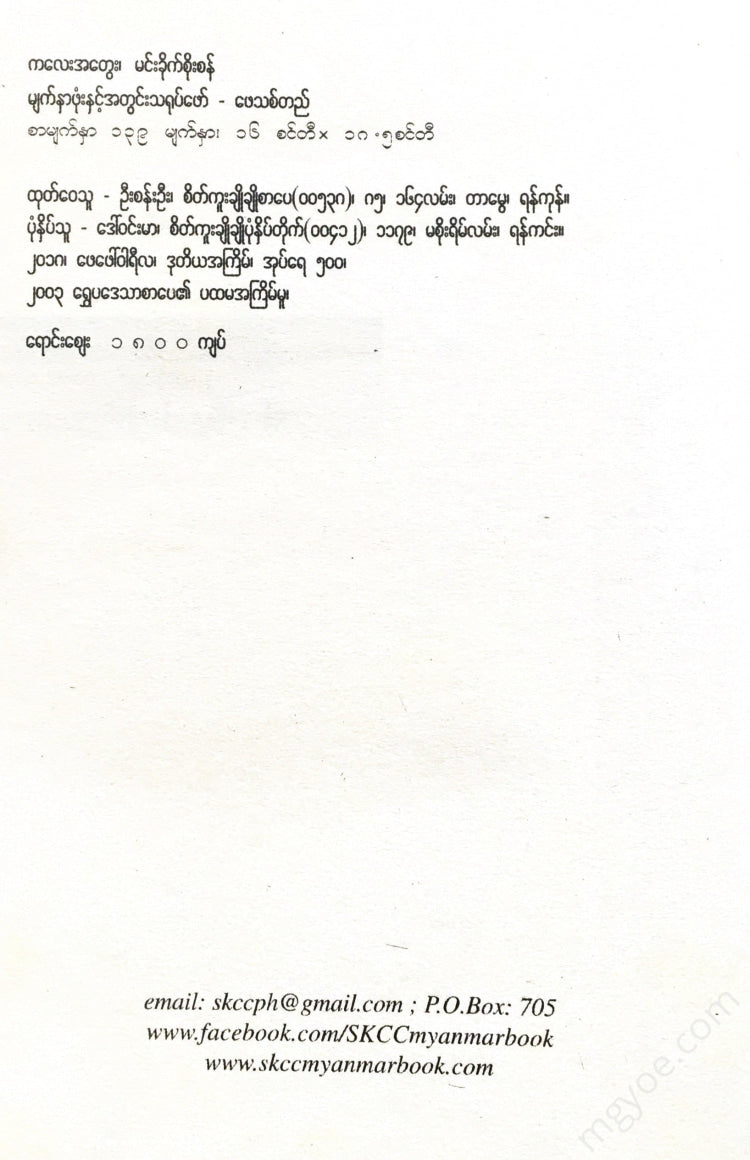 ကလေးအတွေး၊ မင်းခိုက်စိုးစန်
မျက်နှာဖုံးနှင့်အတွင်းသရုပ်ဖော် - ဖေသစ်တည်
စာမျက်နှာ ၁၃၉ မျက်နှာ၊ ၁၆ စင်တီ× ၁၈.၅စင်တီ
ထုတ်ဝေသူ - ဦးစန်းဦး၊ စိတ်ကူးချိုချိုစာပေ(၀၀၅၃၈)၊ ၈၅၊ ၁၆၄လမ်း၊ တာမွေ၊ ရန်ကုန်။
ပုံနှိပ်သူ - ဒေါ်ဝင်းမာ၊ စိတ်ကူးချိုချိုပုံနှိပ်တိုက်(၀၀၄၁၂)၊ ၁၁၇၉၊ မစိုးရိမ်လမ်း၊ ရန်ကင်း။
၂၀၁၈၊ ဖေဖော်ဝါရီလ၊ ဒုတိယအကြိမ်၊ အုပ်ရေ ၅၀၀၊
၂၀၀၃ ရွှေပဒေသာစာပေ၏ ပထမအကြိမ်မူ၊
ရောင်းဈေး ၁ ၈ ၀ ၀ ကျပ်
email: skccph@gmail.com ; P.O.Box: 705
www.facebook.com/SKCCmyanmarbook
www.skccmyanmarbook.com
mgyoe.com